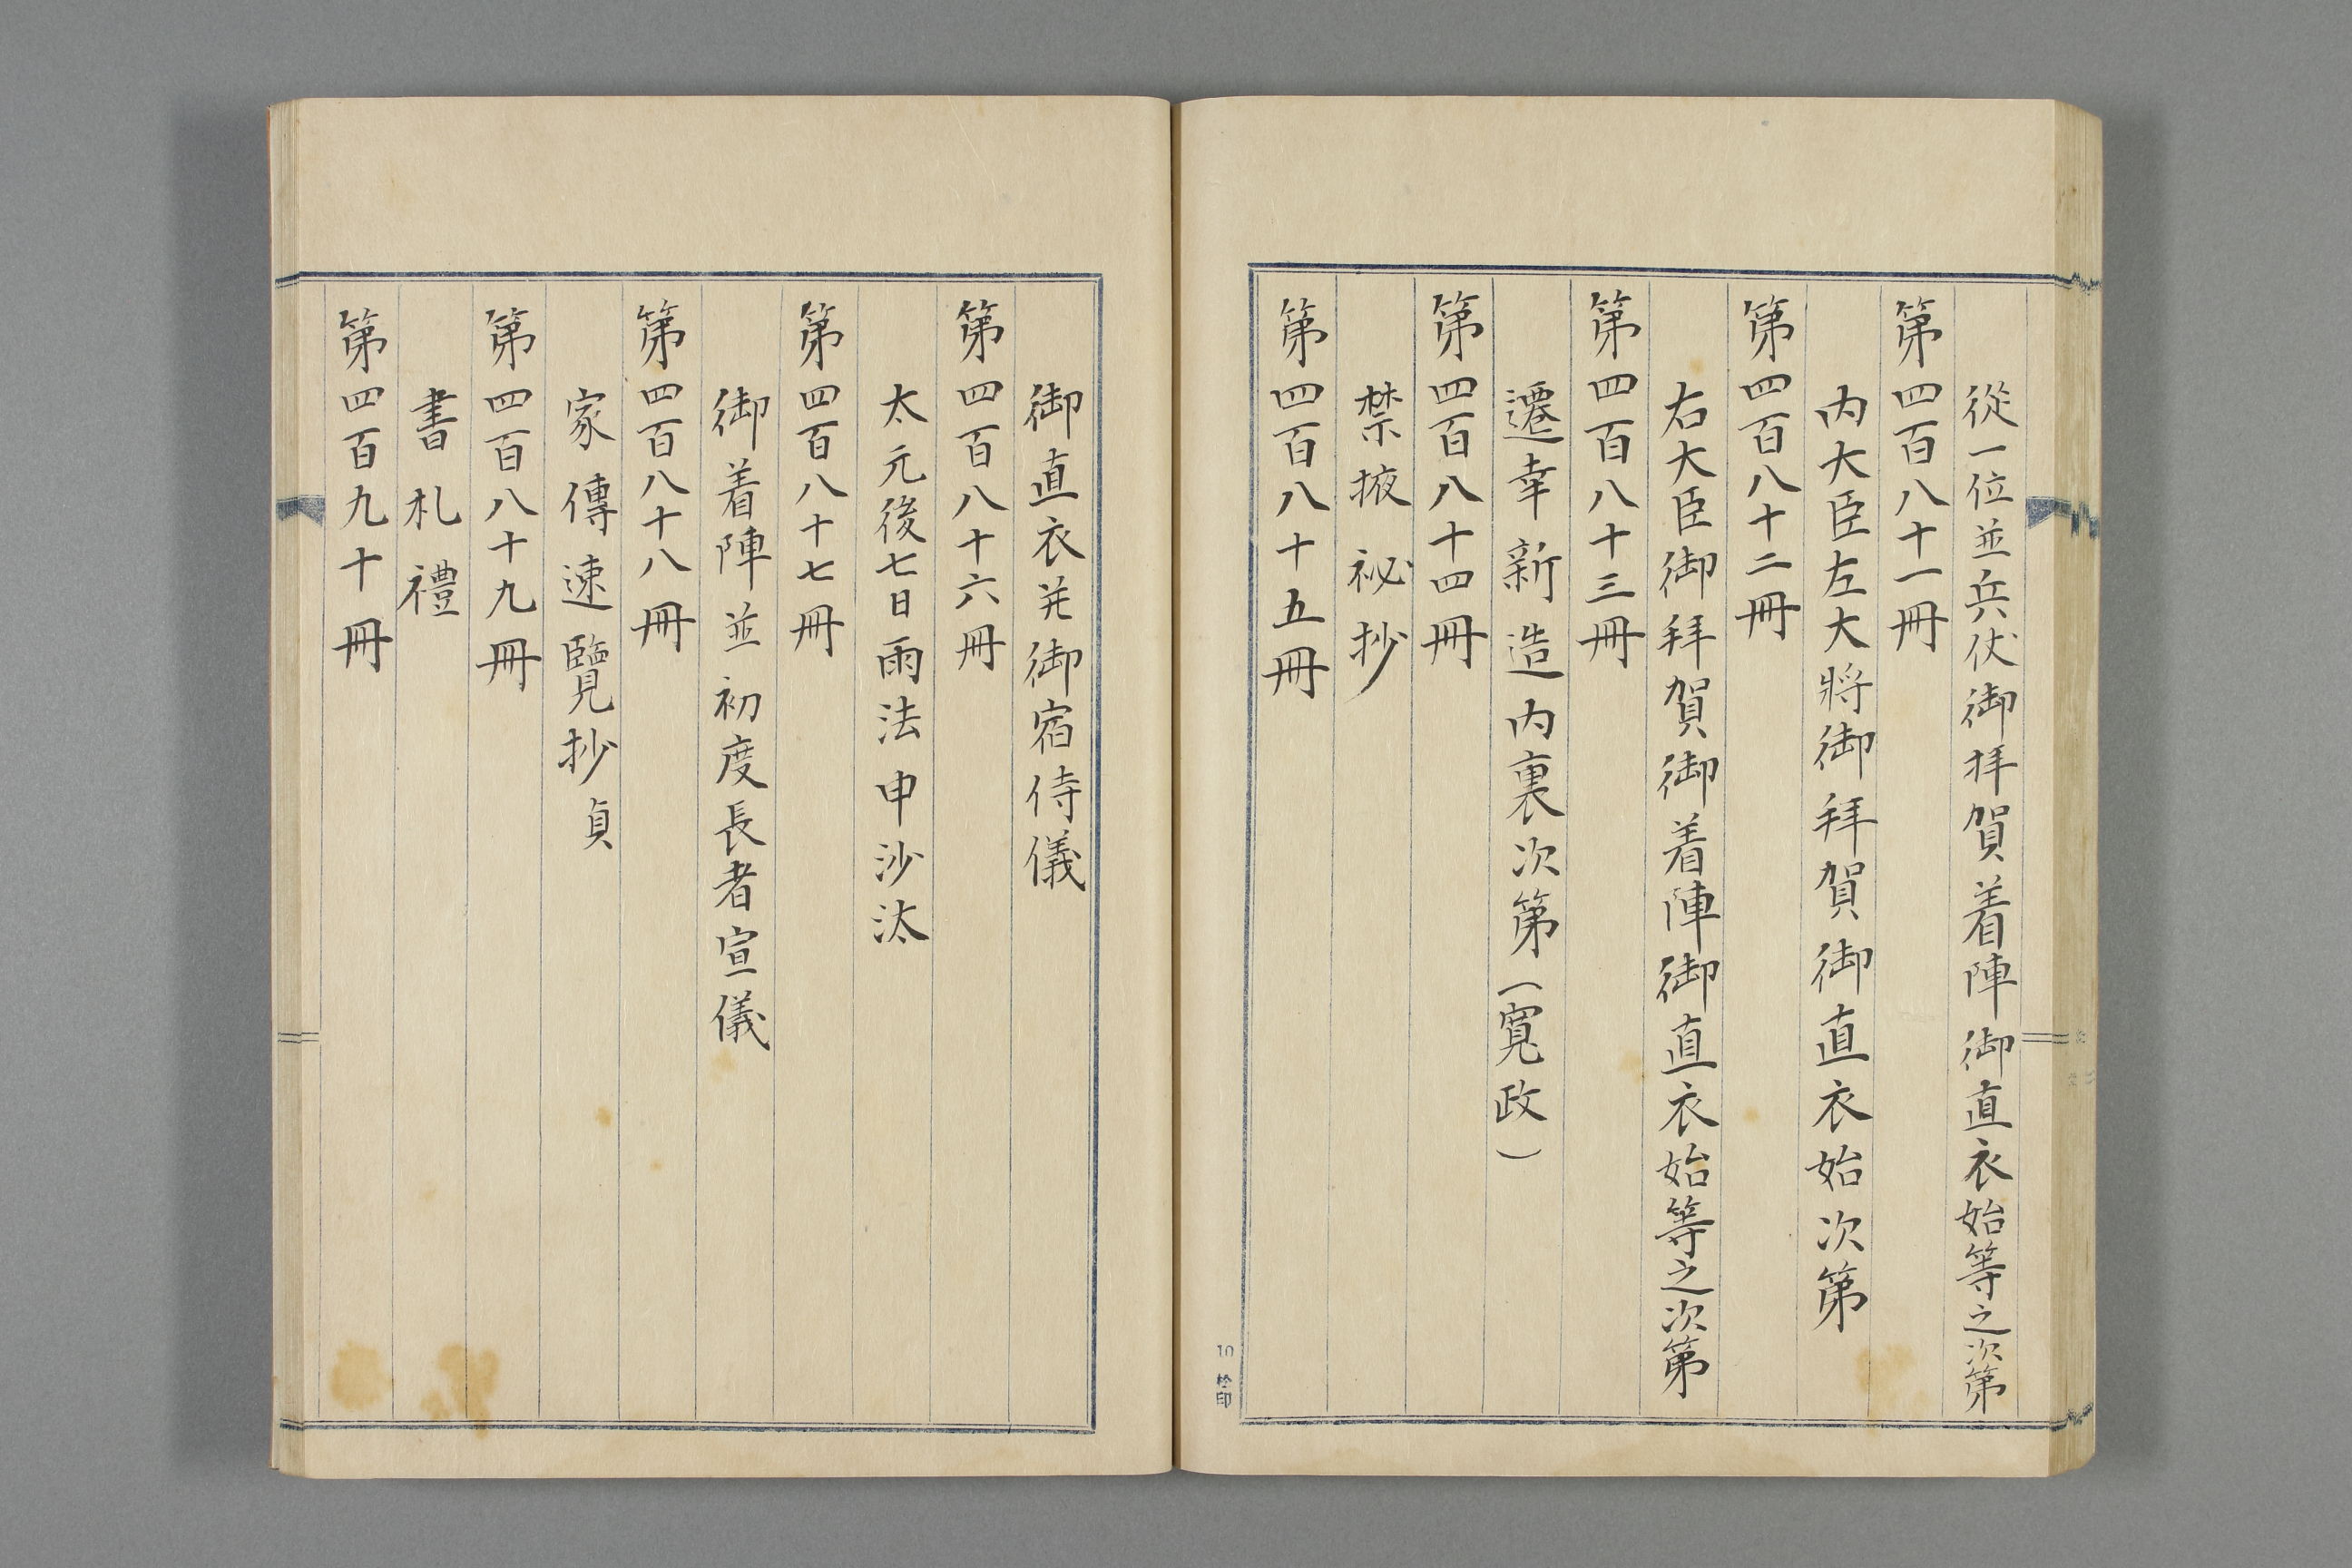 從一位並兵仗御拝賀着陣御直衣始等之次第
第四百八十一冊
内大臣左大將御拜賀御直衣始次第
第四百八十二冊
右大臣御拜賀御着陣御直衣始等之次第
第四百八十三冊
遷幸新造内裏次第(寛政)
第四百八十四冊
禁掖祕抄
第四百八十五冊
10 検印
御直衣并御宿侍儀
第四百八十六冊
太元後七日雨法申沙汰
第四百八十七冊
御着陣並初度長者宣儀
第四百八十八冊
家傳速覽抄 貞
第四百八十九冊
書札禮
第四百九十冊